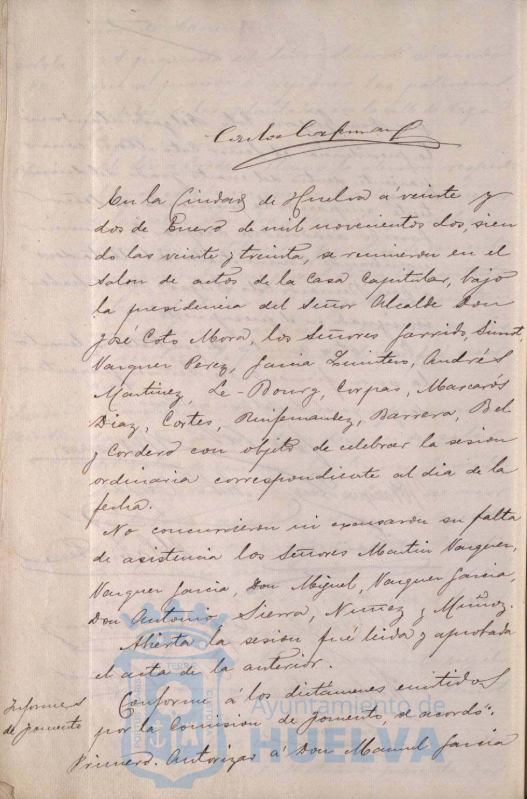 En la Ciudad de Huelva á veinte y
dos de Enero de mil novecientos dos, sien
do las veinte y treinta, se reunieron en el
salon de actos de la Casa Capitular, bajo
la presidencia del Señor Alcalde Don
José Coto Mora, los Señores Garrido, Sunot,
Vazquez Perez, Garcia Quintero, Andrés
Martinez, Le-Bourg, Corpas, Mascarós
Diaz, Cortes, Ruifernandez, Barrera, Bel
y Cordero con objeto de celebrar la sesion
ordinaria correspondiente al dia de la
fecha.
No concurrieron ni excusaron su falta
de asistencia los Señores Martin Vazquez,
Vazquez Garcia, Don Miguel, Vazquez Garcia,
Don Antonio, Sierra, Nuñez y Muñoz.
Abierta la sesion fué leida y aprobada
el acta de la anterior.
Informes
de fomento
Conforme á los dictámenes emitidos
por la Comision de fomento, se acordó:
Primero. Autorizar á Don Manuel Garcia
Ayuntamiento de
HUELVA